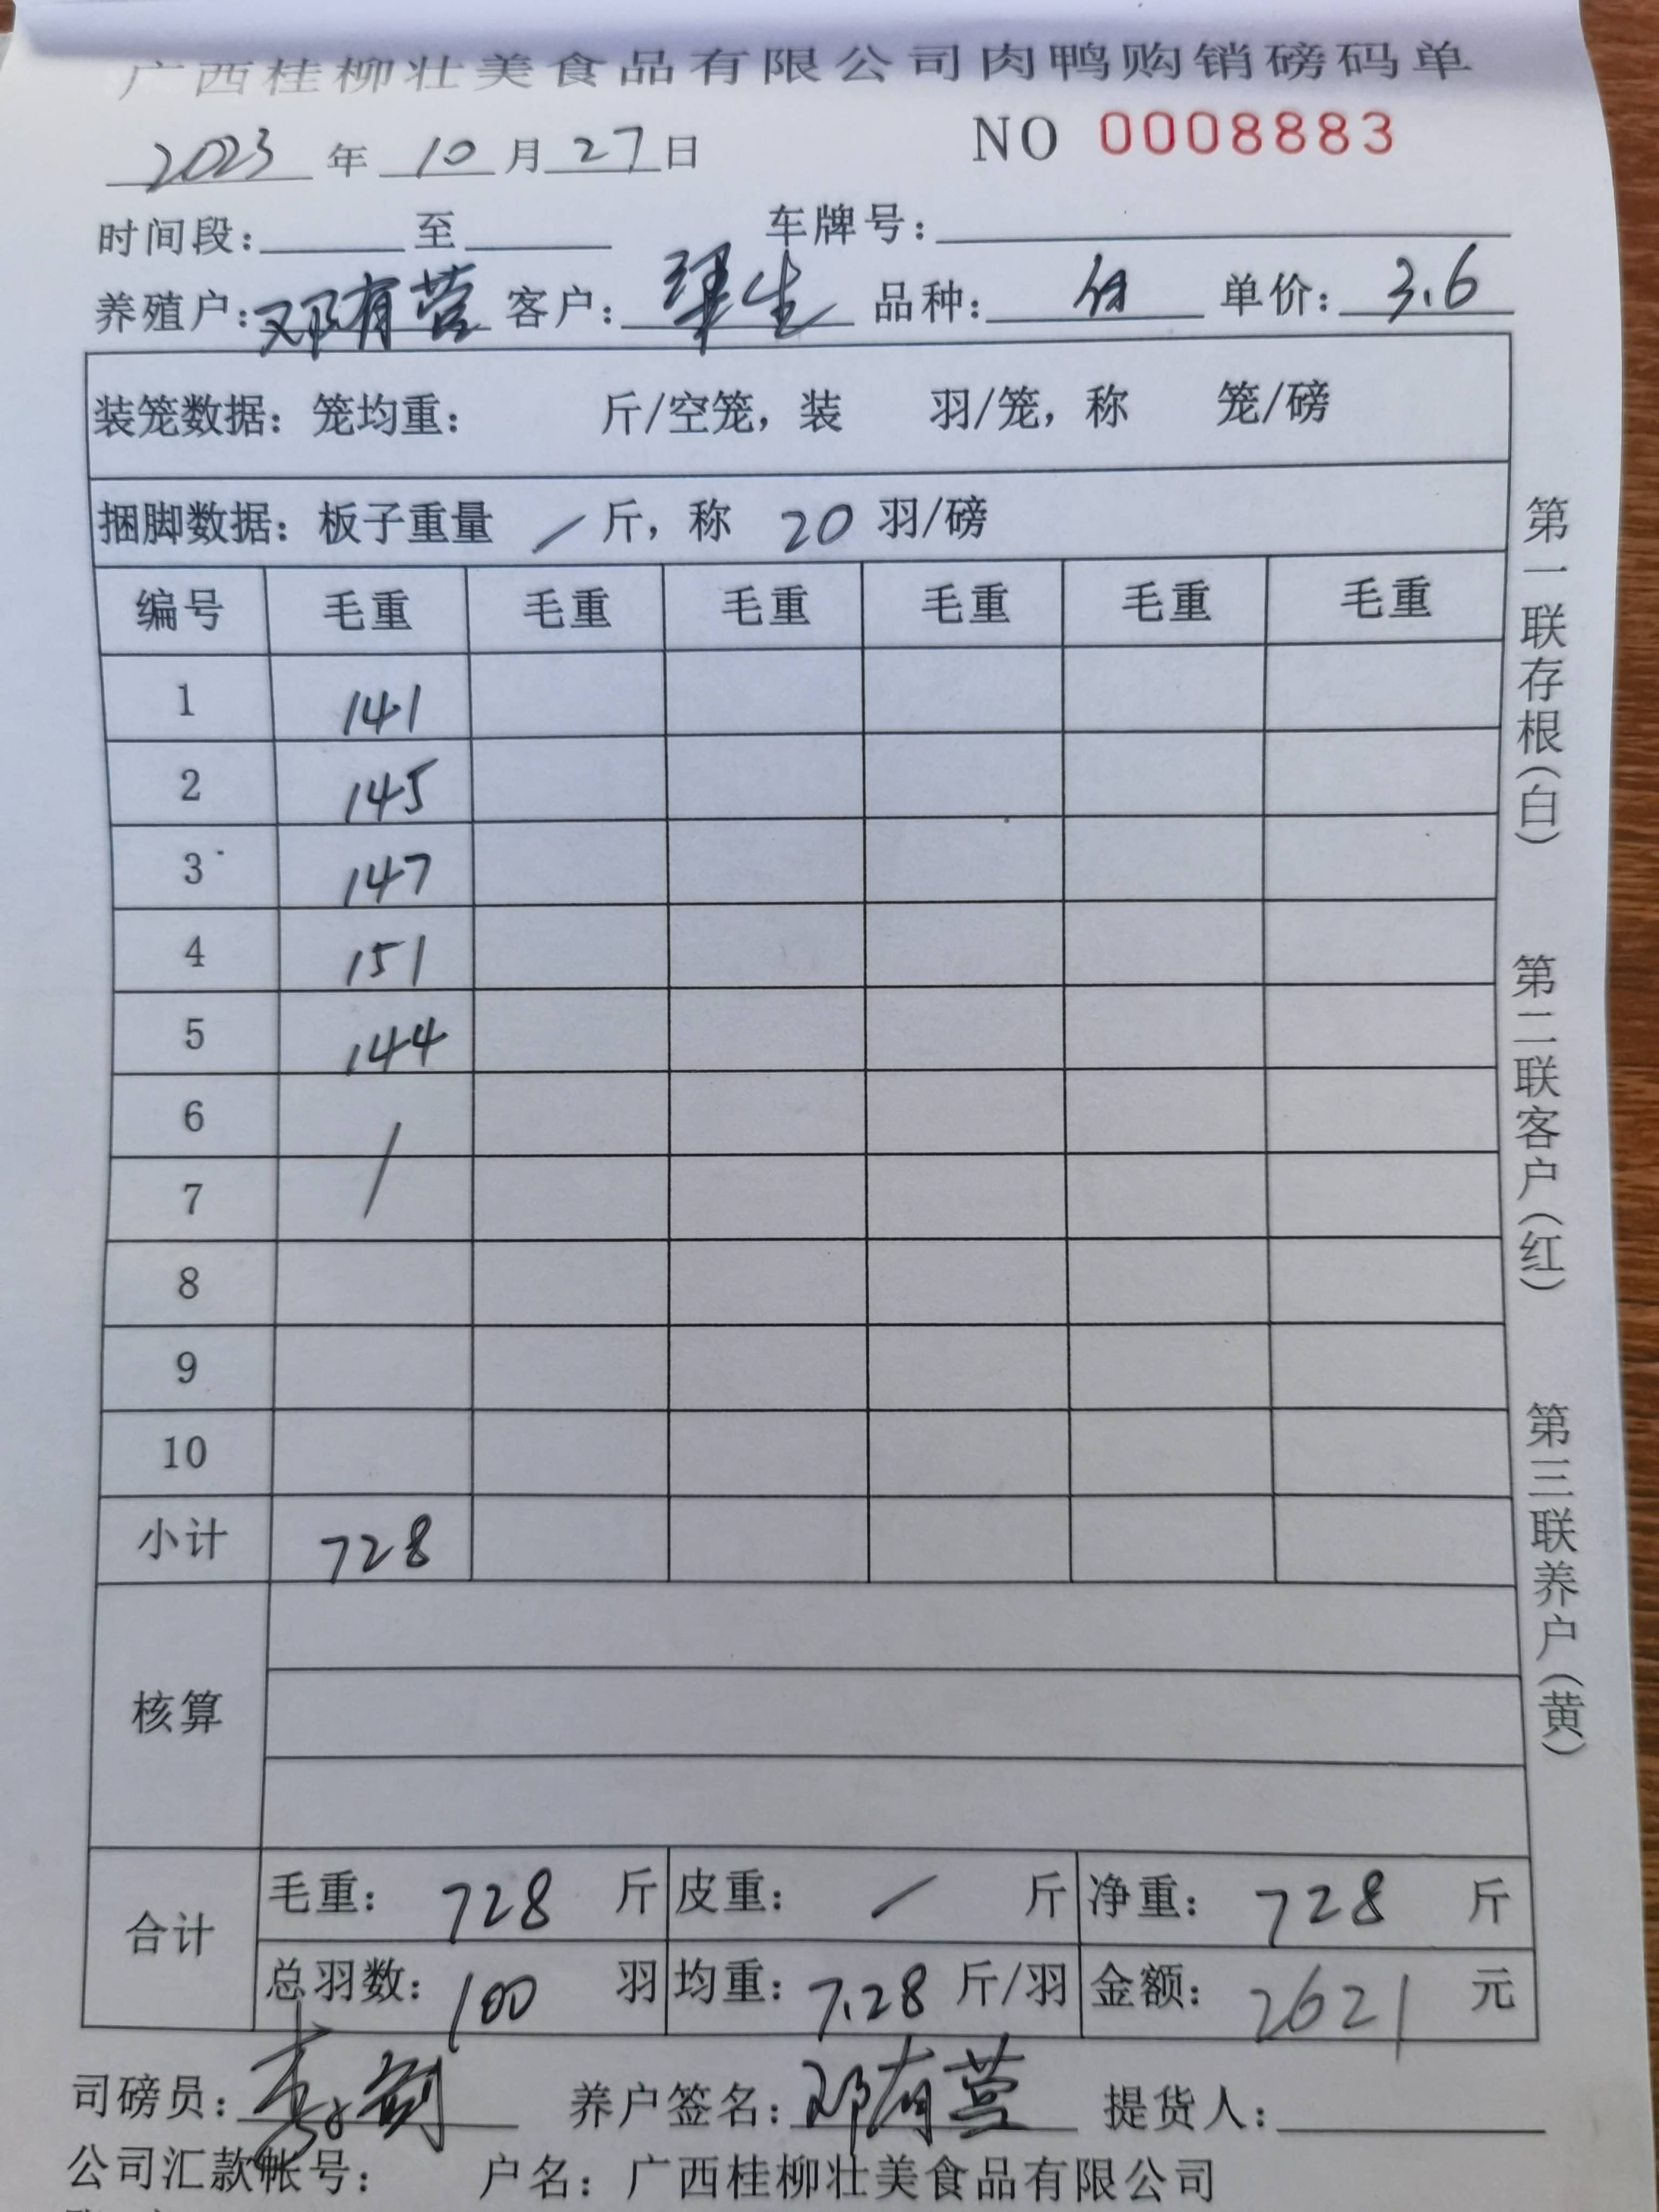 广西桂柳壮美食品有限公司肉鸭购销磅码单
2023 年 10 月 27 日 NO 0008883
时间段: 至 车牌号:
养殖户: 邓有营 客户: 生 品种: 单价: 3.6
装笼数据: 笼均重: 斤/空笼, 装 羽/笼, 称 笼/磅
捆脚数据: 板子重量 / 斤, 称 20 羽/磅
编号 毛重 毛重 毛重 毛重 毛重 毛重
1 141
2 145
3 147
4 151
5 144
6 /
7
8
9
10
小计 728
核算
合计 毛重: 728 斤 皮重: / 斤 净重: 728 斤
总羽数: 100 羽 均重: 7.28 斤/羽 金额: 2621 元
司磅员: 养户签名: 邓有营 提货人:
公司汇款帐号: 户名: 广西桂柳壮美食品有限公司
第一联存根(白)
第二联客户(红)
第三联养户(黄)